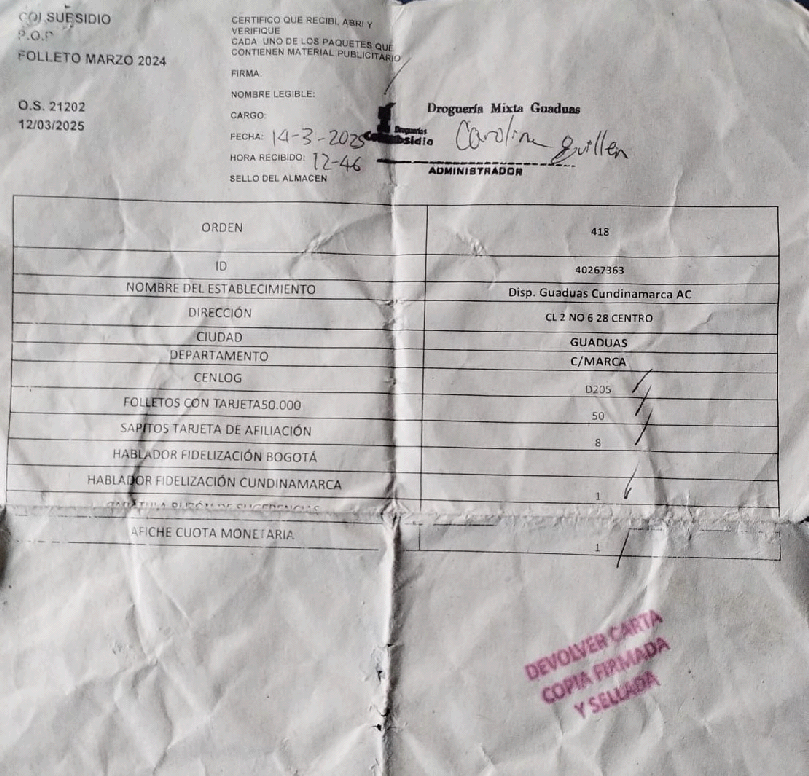 COLSUBSIDIO
P.O.P
FOLLETO MARZO 2024
O.S. 21202
12/03/2025
CERTIFICO QUE RECIBI, ABRI Y
VERIFIQUE
CADA UNO DE LOS PAQUETES QUE
CONTIENEN MATERIAL PUBLICITARIO
FIRMA:
NOMBRE LEGIBLE:
CARGO:
FECHA: 14-3-2025
HORA RECIBIDO: 12-46
SELLO DEL ALMACEN
Droguería Mixta Guaduas
Carolina Guillen
ADMINISTRADOR
ORDEN 418
ID 40267363
NOMBRE DEL ESTABLECIMIENTO Disp. Guaduas Cundinamarca AC
DIRECCIÓN CL 2 NO 6 28 CENTRO
CIUDAD GUADUAS
DEPARTAMENTO C/MARCA
CENLOG D205
FOLLETOS CON TARJETA50.000 50
SAPITOS TARJETA DE AFILIACIÓN 8
HABLADOR FIDELIZACIÓN BOGOTÁ
HABLADOR FIDELIZACIÓN CUNDINAMARCA 1
AFICHE CUOTA MONETARIA 1
DEVOLVER CARTA
COPIA FIRMADA
Y SELLADA